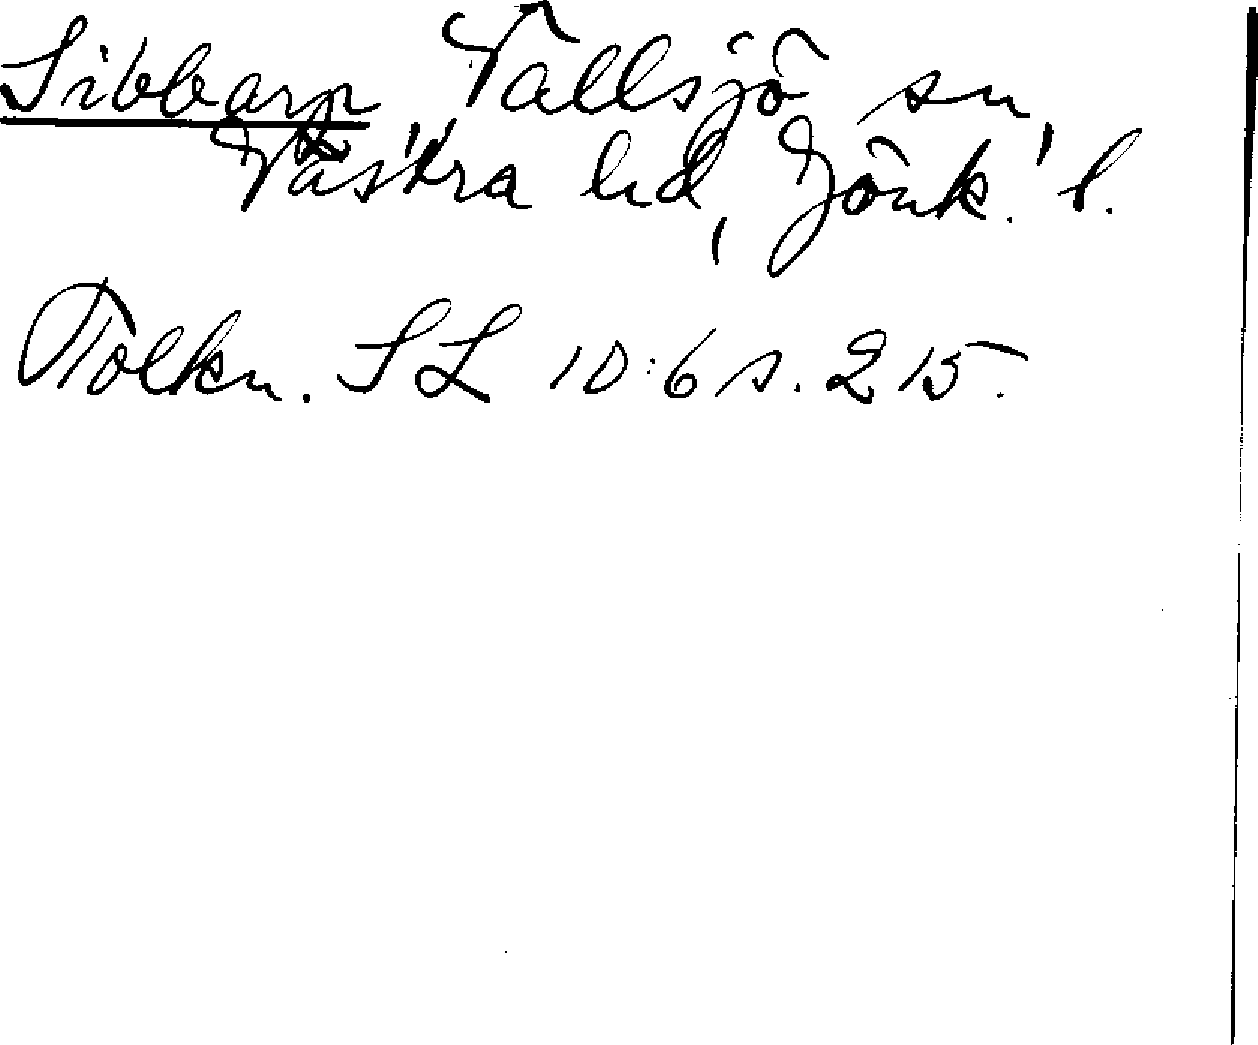 Sibbarp Vallsjö sn,
Västra hd, Jönk. l.
Tolkn. SL 10:6 s. 215.